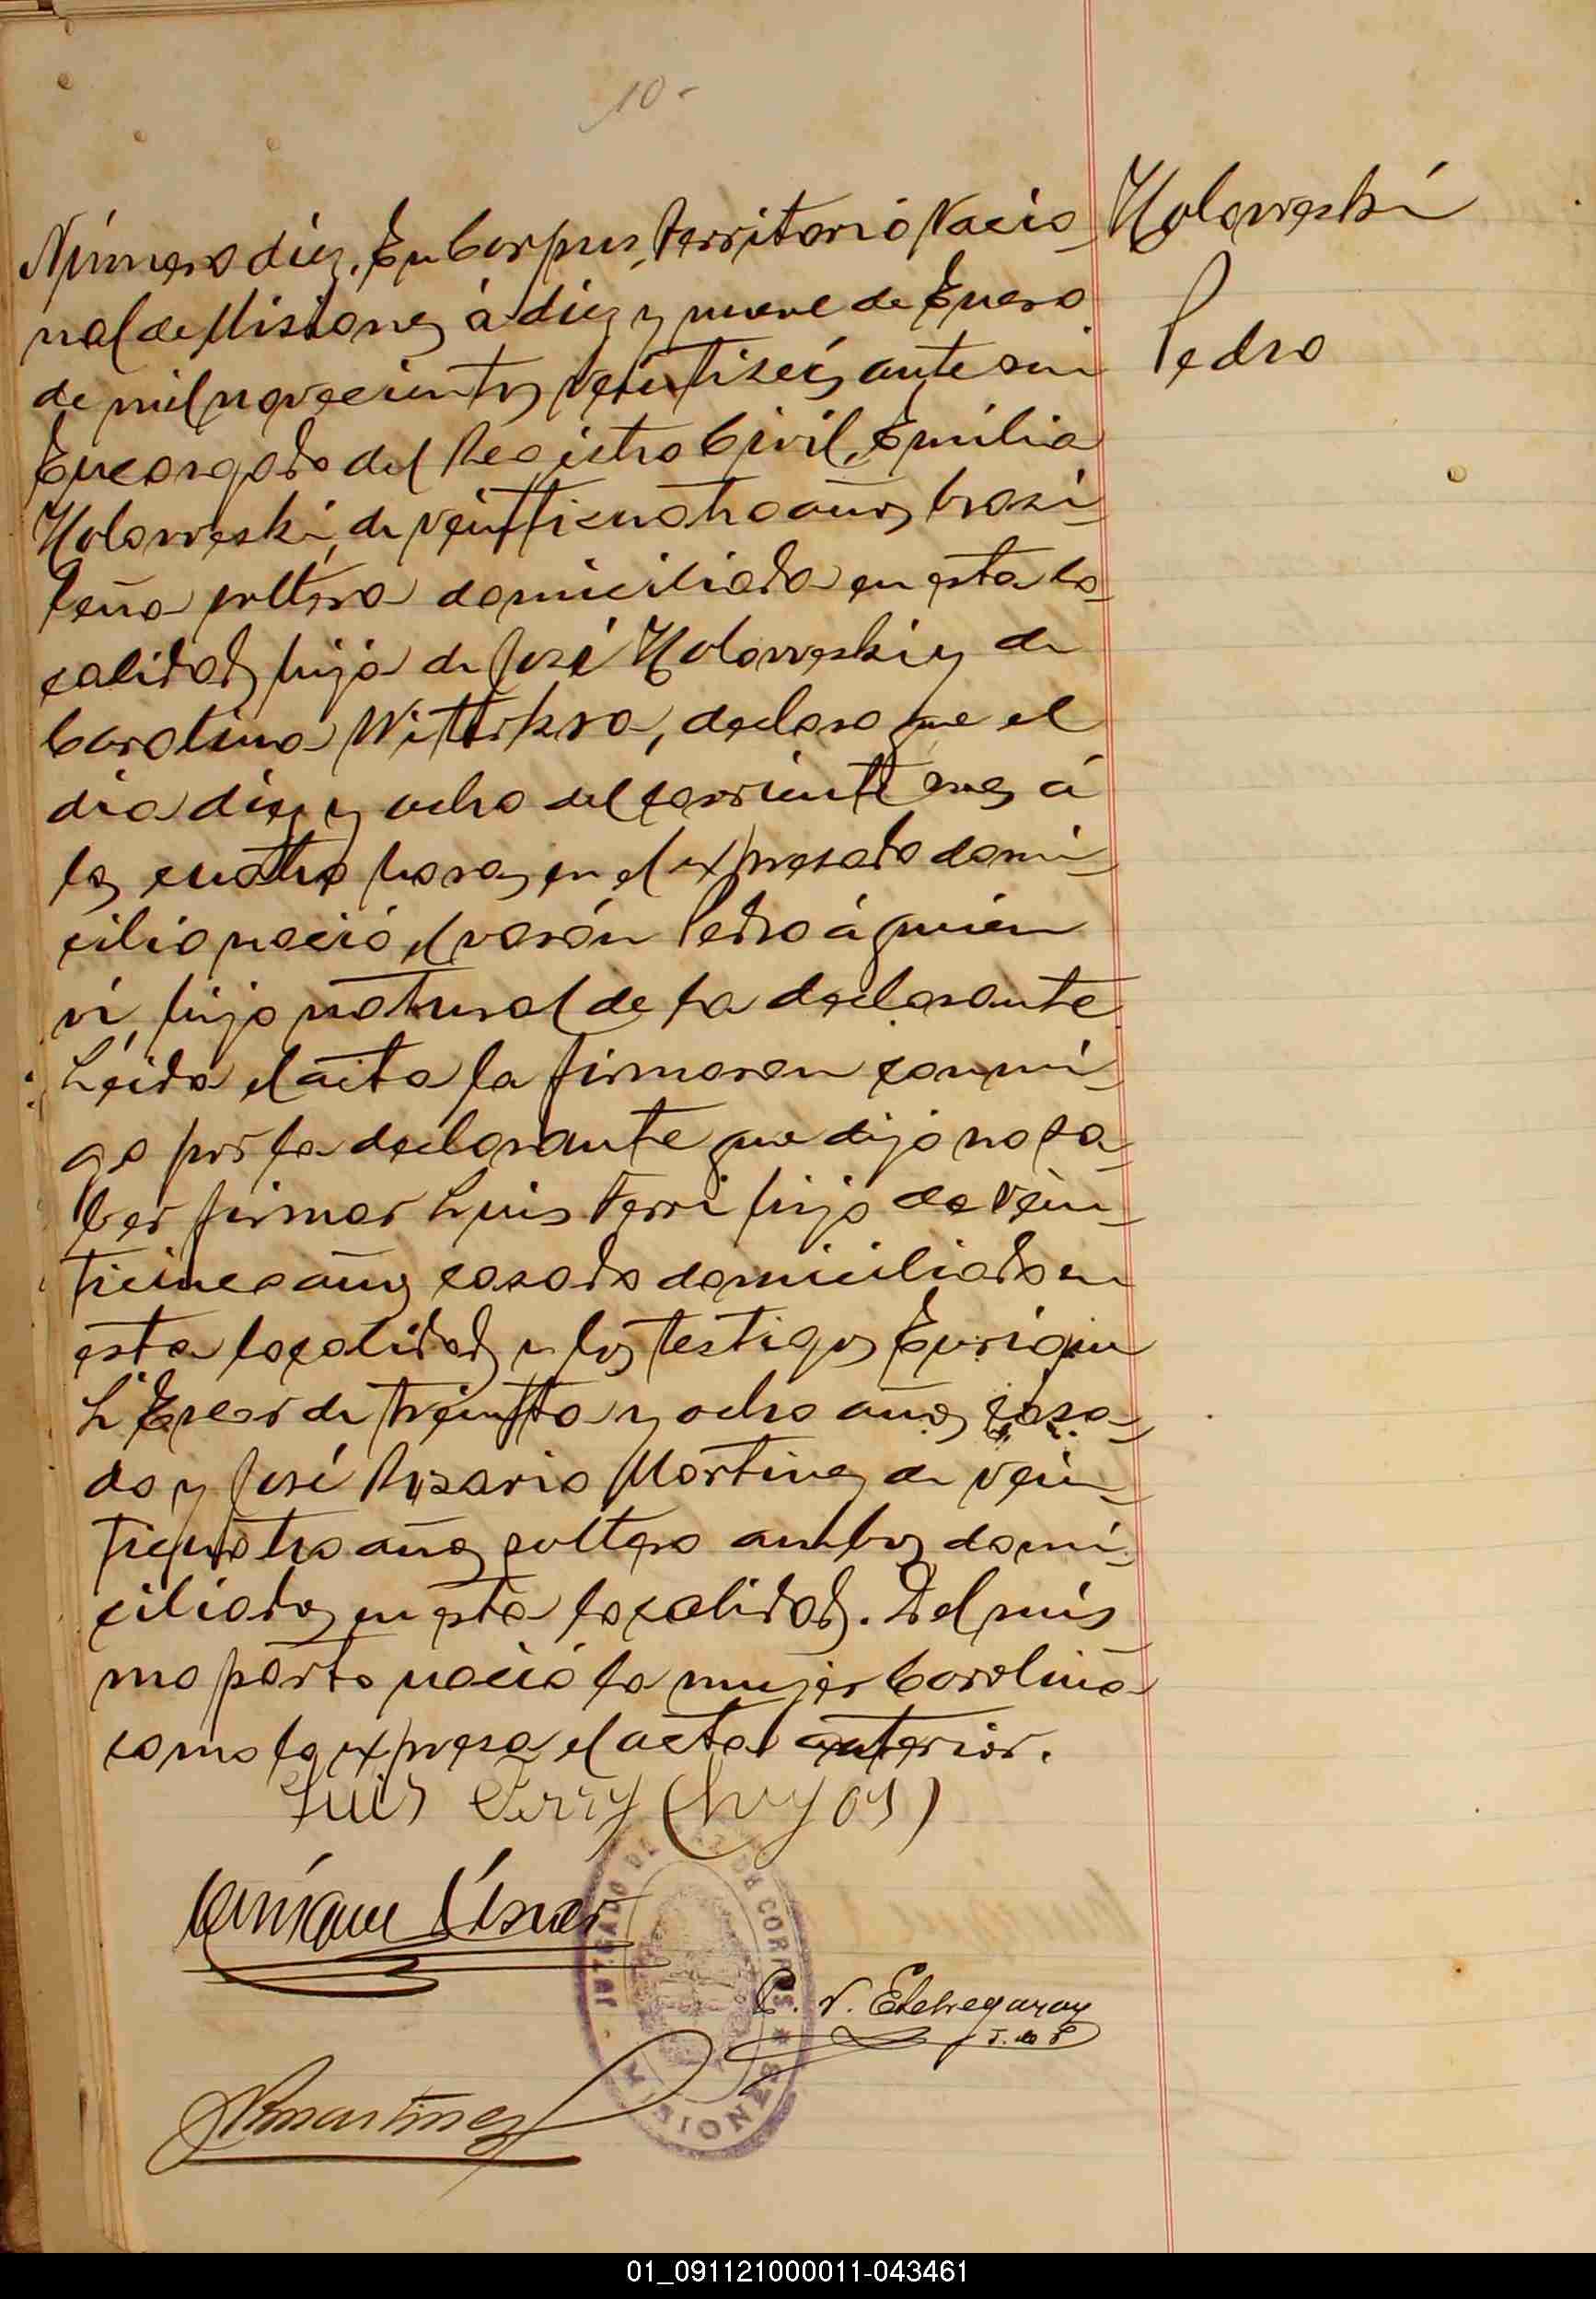 10-
Holoweski
Pedro
Número diez. En Corpus, Territorio Nacio-
nal de Misiones á diez y nueve de Enero
de mil novecientos veintiseis ante mi
Encargado del Registro Civil, Emilia
Holoweski, de veinticuatro años, brasi-
leña soltera domiciliada en esta lo-
calidad, hija de José Holoweski y de
Carolina Witerkra, declara que el
dia diez y ocho del corriente mes á
las cuatro horas en el expresado domi-
cilio nació el varón Pedro á quien
ví, hijo natural de la declarante
Leida el acta la firmaron conmi-
go por la declarante que dijo no sa-
ber firmar Luis Ferri hijo de vein-
ticinco años casado domiciliado en
esta localidad y los testigos Enrique
Lisner de treinta y ocho años casa-
do y José Rosario Martinez de vein-
ticuatro años soltero ambos domi-
ciliados en esta localidad. Del mis
mo parto nació la mujer Carolina
como lo expresa el acta anterior.
Luis Ferry (huyos)
Enrique Lisner
JUZGADO DE PAZ DE CORPUS
MISIONES
C. V. Etchegaray
J. de P
JRMartinez
01_091121000011-043461